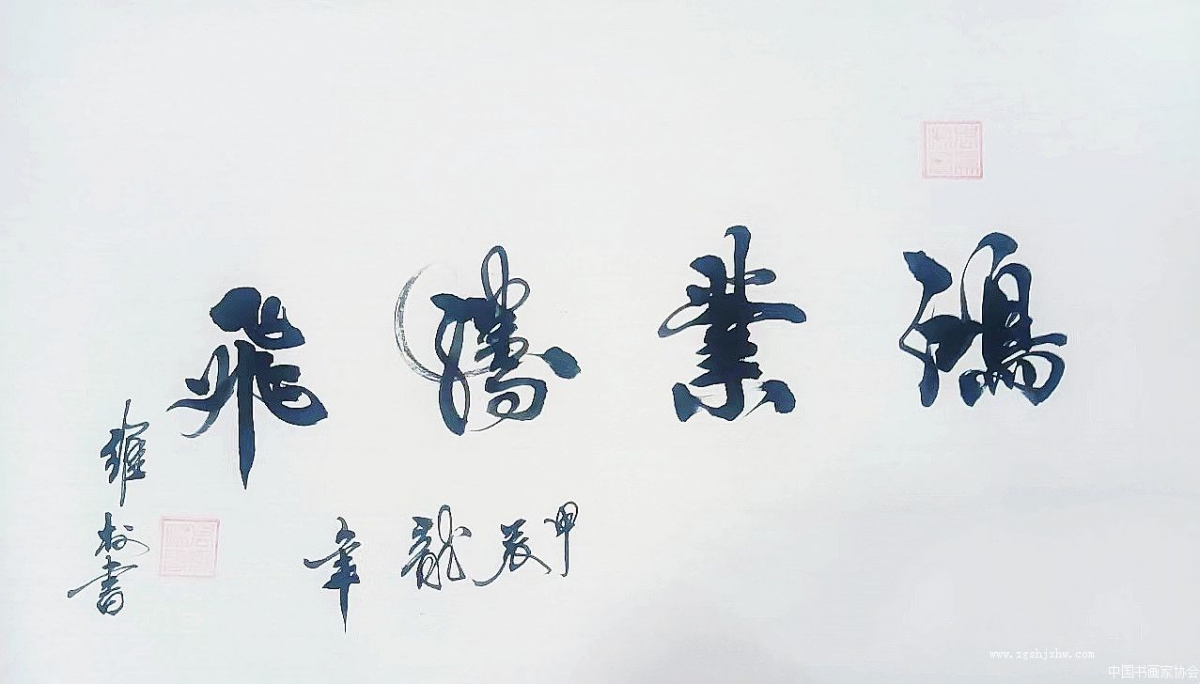 鴻業騰飛
甲辰龍年
維樹書
www.zgshjzhw.com
中国书画家协会